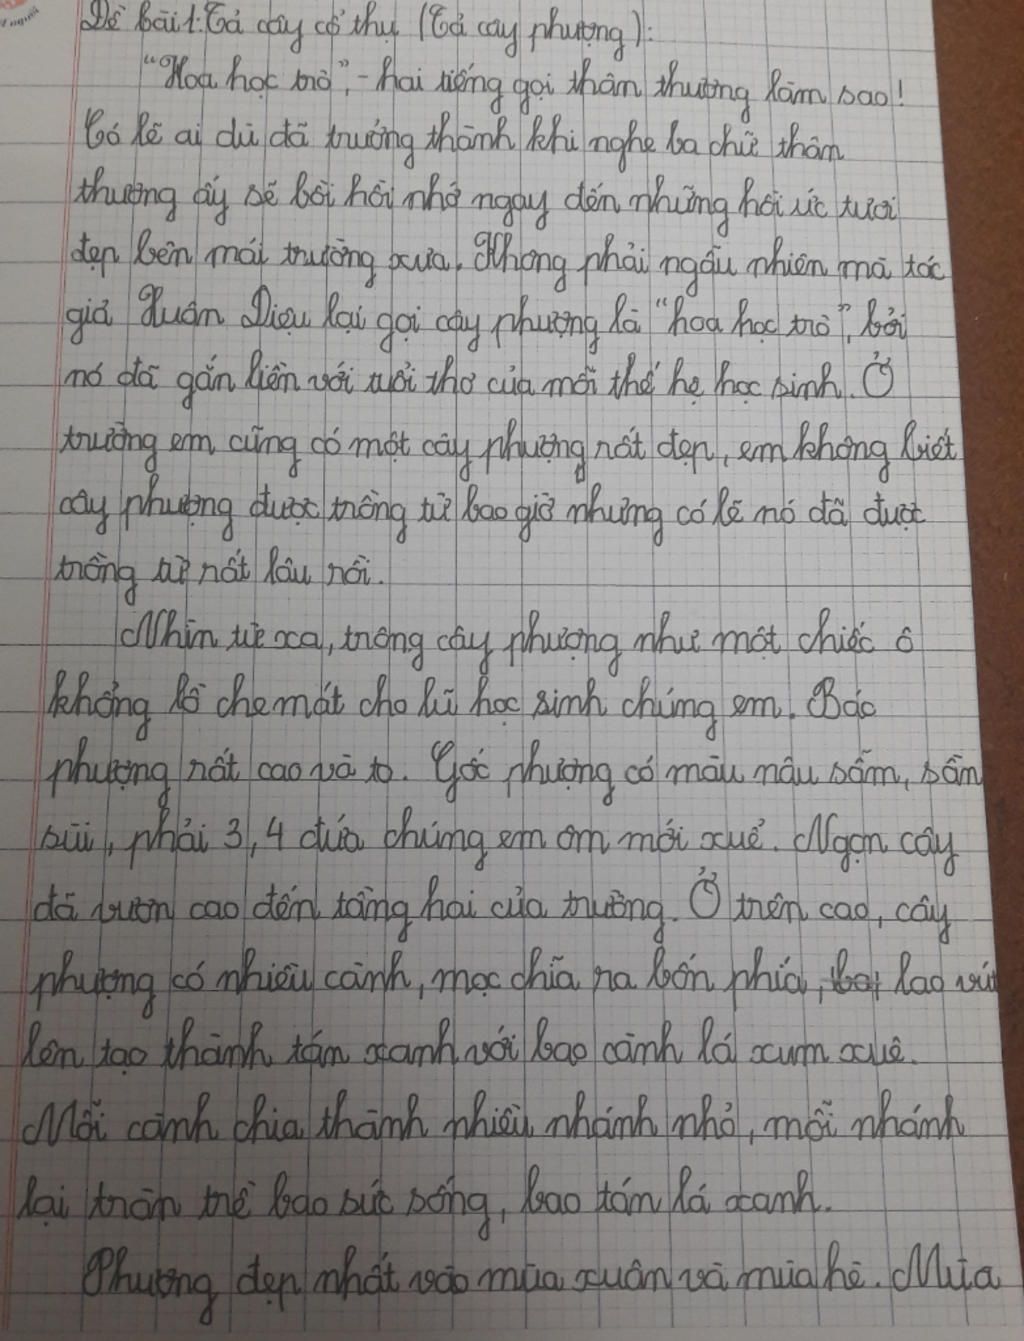 Đề bài 1: Tả cây cổ thụ (Tả cây phượng):
"Hoa học trò", - hai tiếng gọi thân thương làm sao!
Có lẽ ai dù đã trưởng thành khi nghe ba chữ thân
thương ấy sẽ bồi hồi nhớ ngay đến những hồi ức tươi
đẹp bên mái trường xưa. Không phải ngẫu nhiên mà tác
giả Xuân Diệu lại gọi cây phượng là "hoa học trò", bởi
nó đã gắn liền với tuổi thơ của mỗi thế hệ học sinh. Ở
trường em cũng có một cây phượng rất đẹp, em không biết
cây phượng được trồng từ bao giờ nhưng có lẽ nó đã được
trồng từ rất lâu rồi.
Nhìn từ xa, trông cây phượng như một chiếc ô
khổng lồ che mát cho lũ học sinh chúng em. Bác
phượng rất cao và to. Gốc phượng có màu nâu sẫm, sần
sùi, phải 3, 4 đứa chúng em ôm mới xuể. Ngọn cây
đã vươn cao đến tầng hai của trường. Ở trên cao, cây
phượng có nhiều cành, mọc chĩa ra bốn phía, lao vút
lên tạo thành tán xanh với bao cành lá xum xuê.
Mỗi cành chia thành nhiều nhánh nhỏ, mỗi nhánh
lại tràn trề bao sức sống, bao tán lá xanh.
Phượng đẹp nhất vào mùa xuân và mùa hè. Mùa